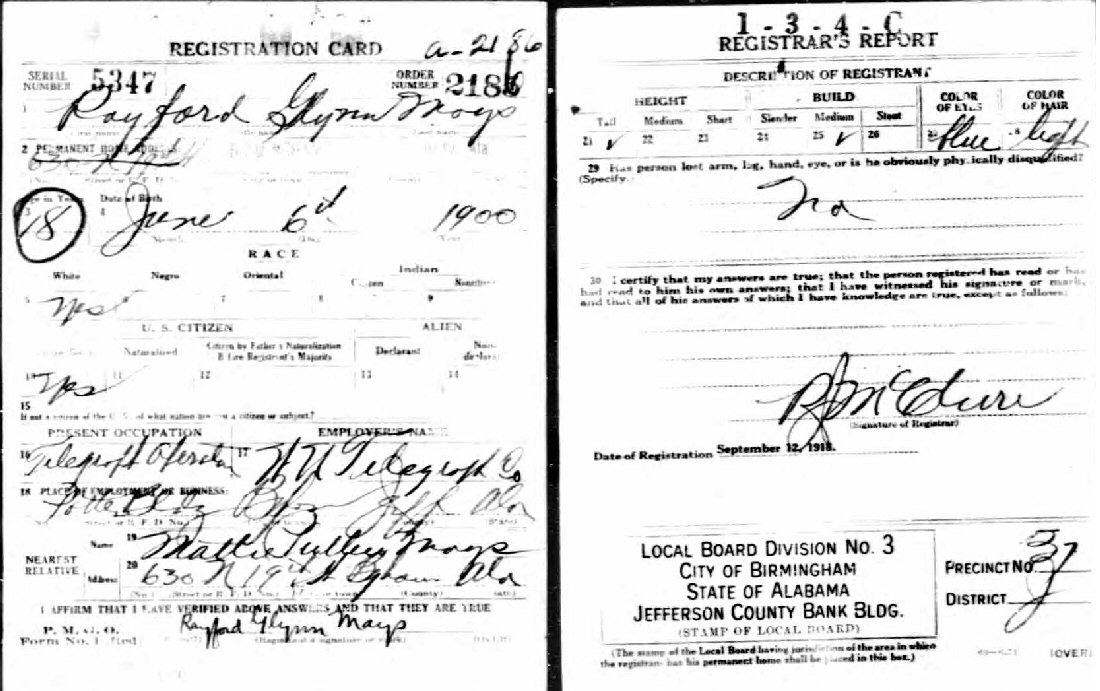 REGISTRATION CARD
a-2186
SERIAL NUMBER 5347
ORDER NUMBER 218
1
Rayford Glynn Mays
2 PERMANENT HOME ADDRESS
630 N 19th
Age in Years Date of Birth
3 4
18 June 6th 1900
RACE
White Negro Oriental Indian
Citizen Noncitizen
5 6 7 8 9
Yes
U. S. CITIZEN ALIEN
Naturalized Citizen by Father's Naturalization Before Registrant's Majority Declarant Non-declarant
10 11 12 13 14
Yes
15
If not a citizen of the U. S., of what nation are you a citizen or subject?
PRESENT OCCUPATION EMPLOYER'S NAME
16 17
Telegraph Operator W U Telegraph Co
18 PLACE OF EMPLOYMENT OR BUSINESS:
Bldg Bham Jeff Ala
NEAREST RELATIVE
Name 19
Mattie Mays
Address 20
630 N 19th St Bham Ala
I AFFIRM THAT I HAVE VERIFIED ABOVE ANSWERS AND THAT THEY ARE TRUE
P. M. G. O.
Form No. 1 (Red)
Rayford Glynn Mays
(Registrant's signature or mark)
1-3-4-C
REGISTRAR'S REPORT
DESCRIPTION OF REGISTRANT
HEIGHT BUILD COLOR OF EYES COLOR OF HAIR
Tall Medium Short Slender Medium Stout
21 ✓ 22 23 24 25 ✓ 26 blue light
29 Has person lost arm, leg, hand, eye, or is he obviously physically disqualified?
(Specify.)
No
30 I certify that my answers are true; that the person registered has read or has
had read to him his own answers; that I have witnessed his signature or mark,
and that all of his answers of which I have knowledge are true, except as follows:
(Signature of Registrar)
Date of Registration September 12, 1918.
LOCAL BOARD DIVISION NO. 3
CITY OF BIRMINGHAM
STATE OF ALABAMA
JEFFERSON COUNTY BANK BLDG.
(STAMP OF LOCAL BOARD)
PRECINCT No 37
DISTRICT
(The stamp of the Local Board having jurisdiction of the area in which
the registrant has his permanent home shall be placed in this box.)
(OVER)